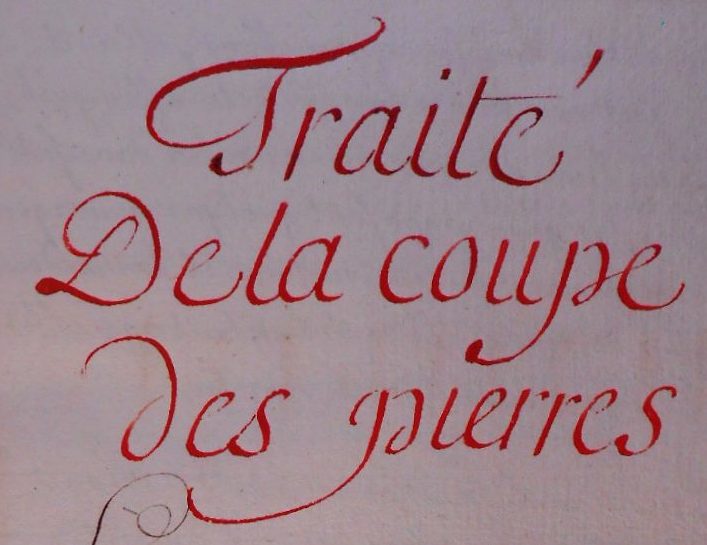 Traité
De la coupe
des pierres